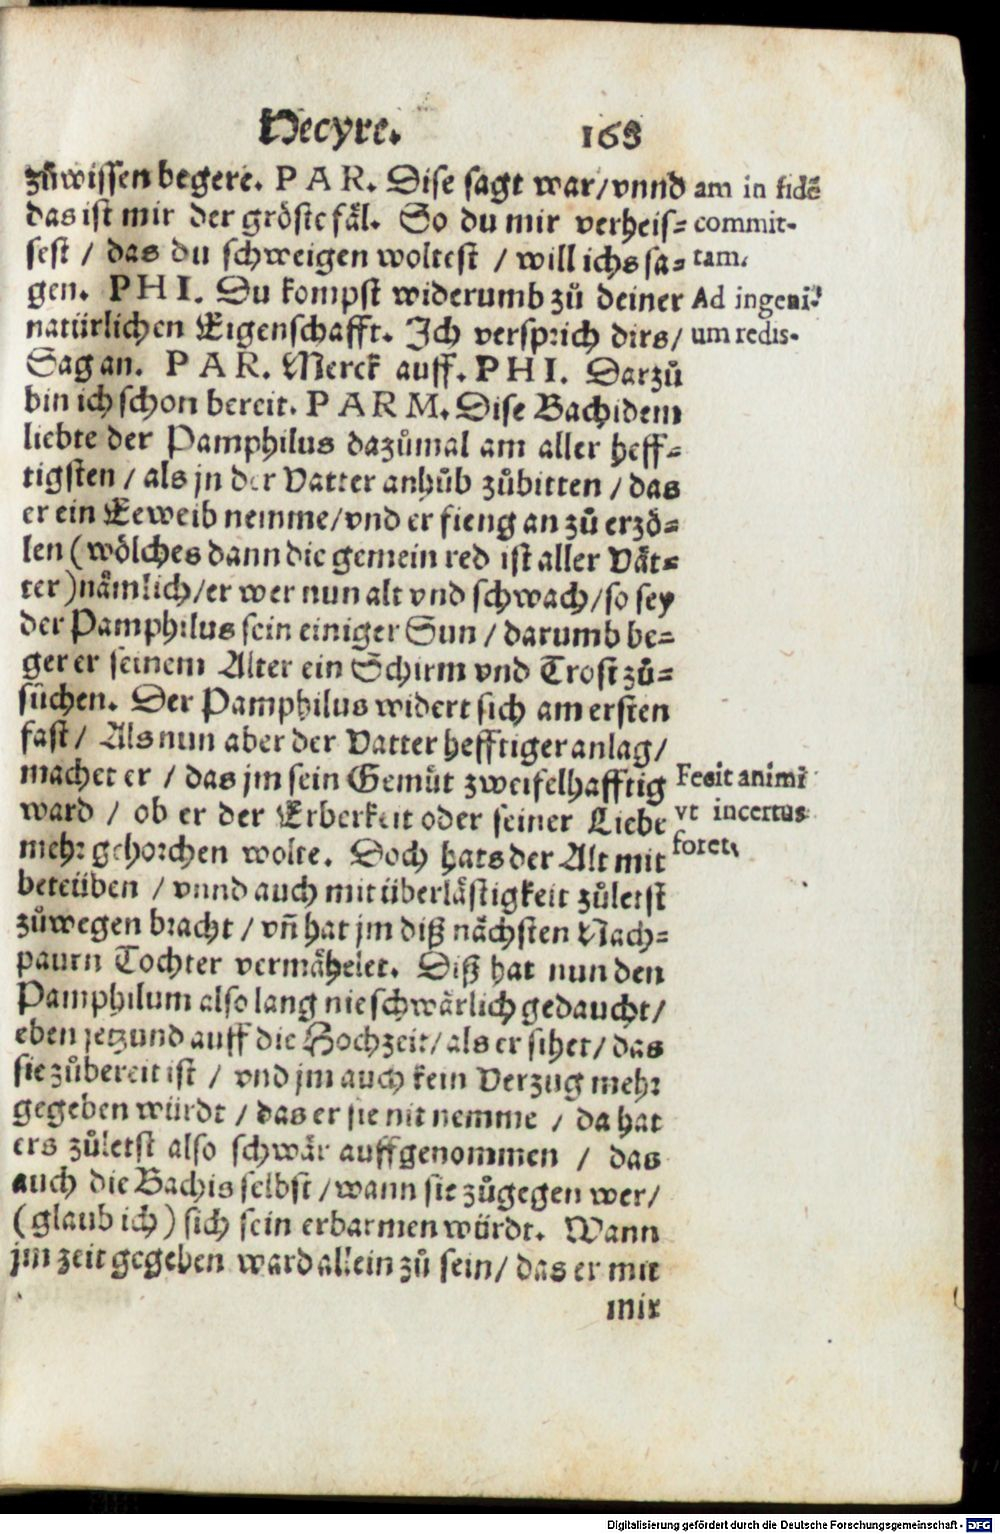 Hecyre. 163
zůwissen begere. PAR. Dise sagt war/vnnd
das ist mir der gröste fäl. So du mir verheis⸗
sest / das du schweigen woltest / will ichs sa⸗
gen. PHI. Du kompst widerumb zů deiner
natürlichen Eigenschafft. Ich versprich dirs/
Sag an. PAR. Merck auff. PHI. Darzů
bin ich schon bereit. PARM. Dise Bachidem
liebte der Pamphilus dazůmal am aller heff⸗
tigsten / als jn der Vatter anhůb zůbitten / das
er ein Eeweib nemme/vnd er fieng an zů erzö⸗
len (wölches dann die gemein red ist aller Vät⸗
ter) nämlich/er wer nun alt vnd schwach/so sey
der Pamphilus sein einiger Sun / darumb be⸗
ger er seinem Alter ein Schirm vnd Trost zů⸗
süchen. Der Pamphilus widert sich am ersten
fast / Als nun aber der Vatter hefftiger anlag/
machet er / das jm sein Gemüt zweifelhafftig
ward / ob er der Erberkeit oder seiner Liebe
mehr gehorchen wolte. Doch hats der Alt mit
beteüben / vnnd auch mit überlästigkeit zůletst
zůwegen bracht / vñ hat jm diß nächsten Nach⸗
paurn Tochter vermähelet. Diß hat nun den
Pamphilum also lang nie schwärlich gedaucht/
eben jetzund auff die Hochzeit/als er sihet/das
sie zůbereit ist / vnd jm auch kein Verzug mehr
gegeben würdt / das er sie nit nemme / da hat
ers zůletst also schwär auffgenommen / das
auch die Bachis selbst / wann sie zůgegen wer/
(glaub ich) sich sein erbarmen würdt. Wann
jm zeit gegeben ward allein zů sein/das er mit
mir
am in fidē
commit-
tam.
Ad ingeni-
um redis.
Fecit animi
vt incertus
foret.
Digitalisierung gefördert durch die Deutsche Forschungsgemeinschaft - DFG